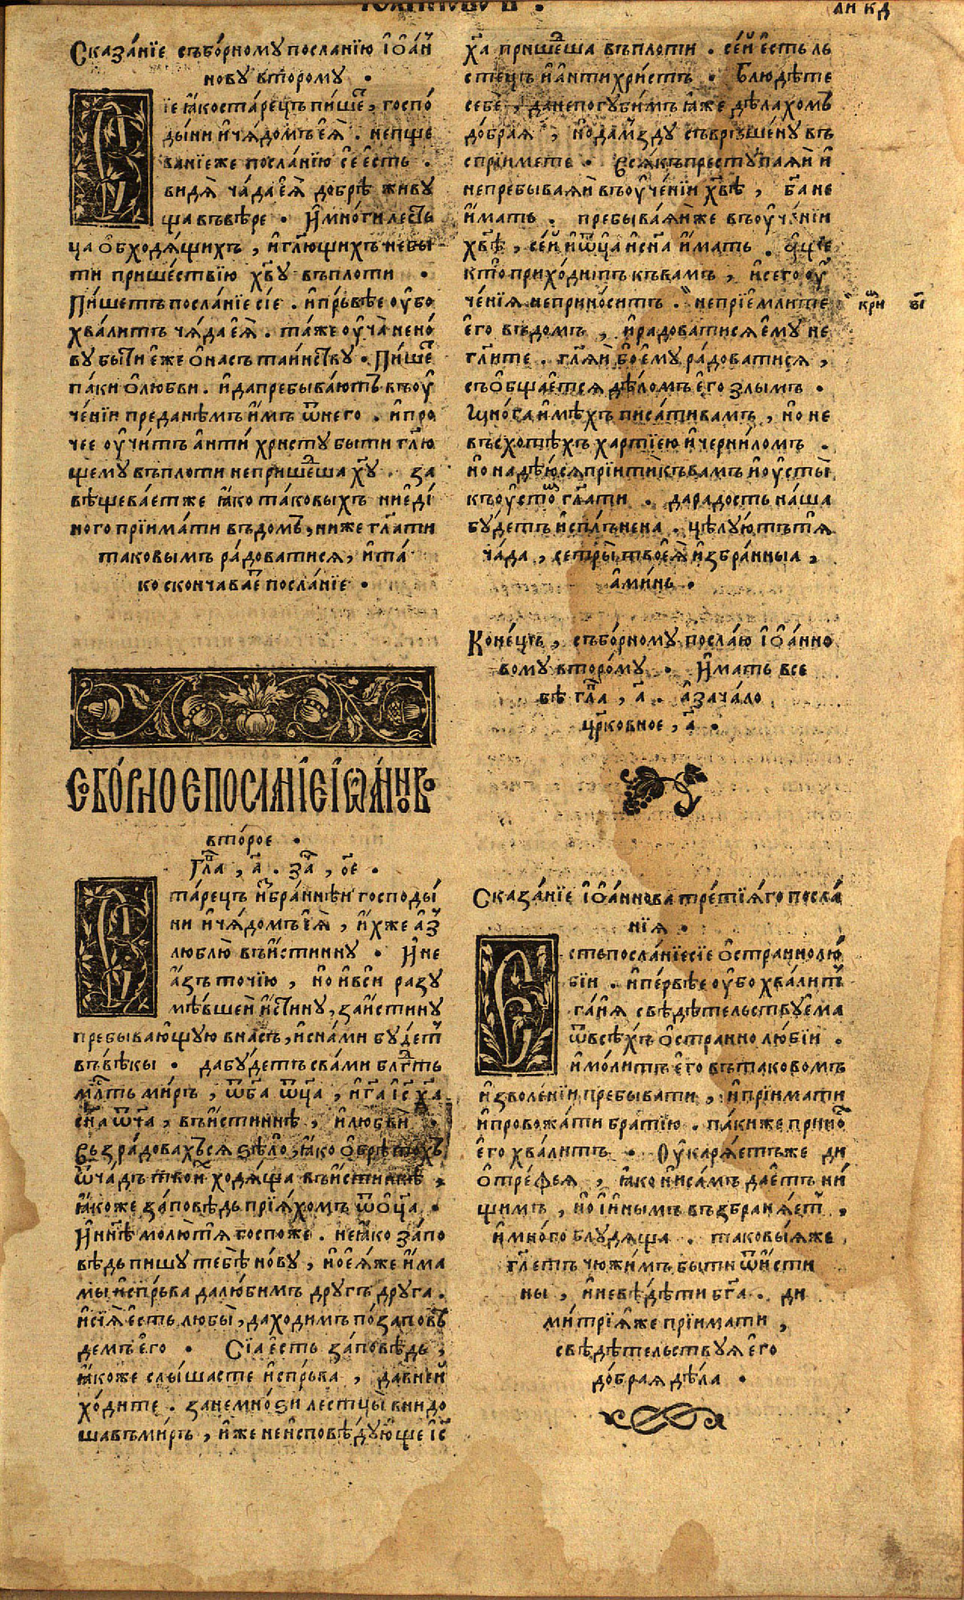 Сказанїе съборному посланїю іѡа҃н
нову второму .
Сїе ꙗко старецъ пише , госпо
дыни и҆ чядомъ еꙗ̀ . непще
ванїе же посланїю сѐ есть .
видѧ̀ чада еꙗ̀ добрѣ живу
ща въ вѣре . И҆ многи лесть
ца обходящихъ , и҆ гл҃ющихъ не бы
ти пришествїю хв҃у въ плоти .
Пишетъ посланїе сїе . и҆ прьвѣе оубо
хвалитъ чяда еꙗ̀ . таже оуча не но
ву быти еже о насъ таиньству . Пише
паки о любви . и҆ да пребываютъ въ оу
ченїи преданѣмъ имъ ѿ него . и҆ про
чее оучитъ антихристу быти гл҃ю
щему въ плоти не пришедша х҃у . за
вѣщевает же ꙗко таковыхъ ни еди
ного прїимати въ домъ , ниже гл҃ати
таковымъ радоватися , и҆ та
ко скончавае посланїе .
СЪБОРНОЕ ПОСЛАНЇЕ ІѠАННОВО
второе .
Гл҃а , а҃ . за҃ , о҃е .
Старецъ и҆збраннѣи господы
ни и҆ чядомъ еꙗ̀ , и҆хже аз
люблю въ истинну . И҆ не
азъ точїю , но и҆ вси разу
мѣвшеи истину , за истину
пребывающую в насъ , и с нами будет
въ вѣкы . да будетъ с вами блг҃ть
мл҃ть миръ , ѿ б҃а ѿц҃а , и҆ г҃а і҃с х҃а
сн҃а ѿч҃а , въ истиннѣ , и҆ любви .
Възрадовахъся ѕѣло , ꙗко обрѣтохъ
ѿ чадъ твоих ходяща въ истиннѣ ,
ꙗкоже заповѣдь прїяхомъ ѿ оц҃а .
И҆ ннѣ молю тя госпоже . не ꙗко запо
вѣдь пишу тебѣ нову , но еяже има
мы испрьва да любимъ другъ друга .
и҆ сїя есть любы , да ходимъ по запов
демъ его . Сїа есть заповѣдь ,
ꙗкоже слышасте испрьва , да в неи
ходите . зане мноѕи лестцы внидо
ша въ миръ , иже не исповѣдующе і҃с
х҃а пришедша въ плоти . сеи есть ль
стецъ и антихристъ . Блюдѣте
себе , да не погубимъ ꙗже дѣлахомъ
добрая , но да мзду съвршену въ
спрїимете . Всякъ преступаяи и
не пребываяи въ оученїи хв҃ѣ , б҃а не
имать . пребываяи же въ оученїи
хв҃ѣ , сеи и ѿц҃а и сн҃а имать . аще
кто приходитъ къ вамъ , и сего оу
ченїя не приноситъ . не прїемлите
его въ домъ , и радоватися ему не
гл҃ите . гл҃яи бо ему радоватися ,
съобщается дѣломъ его злымъ .
Многа имѣхъ писати вамъ , но не
въсхотѣхъ хартїею и чернилом .
но надѣюся прїити къ вамъ и оусты
къ оустом гл҃ати . да радость наша
будетъ исплънена . цѣлуютъ тя
чада , сестры твоея избранныа ,
аминь .
Конецъ , съборному послаю іѡанно
вому второму . И҆мать все
бѣ гл҃а , а҃ . а зачало
цр҃ковное , а҃ .
Сказанїе іѡаннова третїяго посла
нїя .
Есть посланїе сїе о страннолю
бїи . и҆ первѣе оубо хвалит
гаия свѣдѣтельствуема
ѿ всѣхъ о страннолюбїи .
и молитъ его въ таковомъ
изволенїи пребывати , и прїимати
и провожати братїю . паки же прино
его хвалитъ . Оукаряетъ же ди
отрефея , ꙗко ни самъ даетъ ни
щимъ , но и инымъ възбраняет ,
и много блудяща . таковыя же
гл҃етъ чюжимъ быти ѿ исти
ны , и не вѣдѣти б҃га . ди
митрїя же прїимати ,
свѣдѣтельствуя его
добрая дѣла .